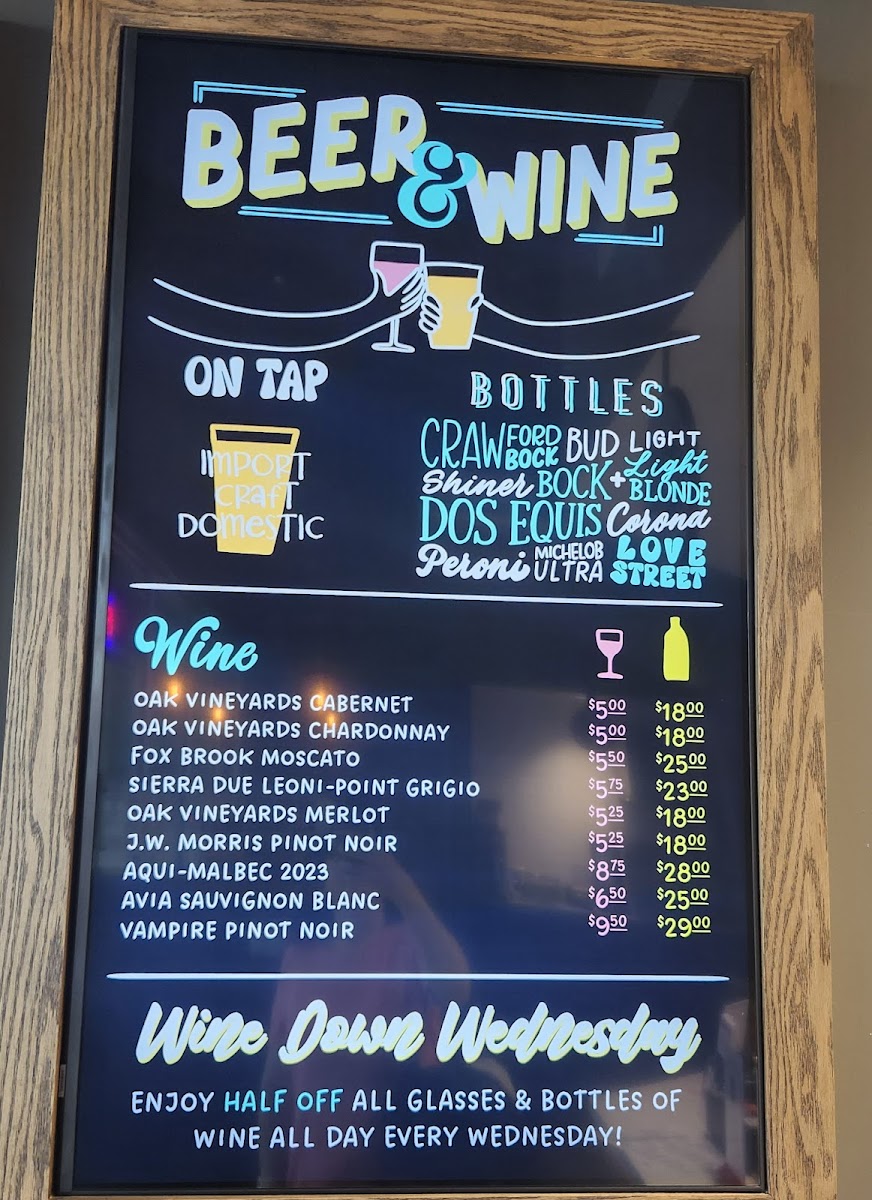 BEER & WINE
ON TAP
IMPORT
CRAFT
DOMESTIC
BOTTLES
CRAWFORD BOCK BUD LIGHT
Shiner BOCK + Light BLONDE
DOS EQUIS Corona
Peroni MICHELOB ULTRA LOVE STREET
Wine
OAK VINEYARDS CABERNET $5.00 $18.00
OAK VINEYARDS CHARDONNAY $5.00 $18.00
FOX BROOK MOSCATO $5.50 $25.00
SIERRA DUE LEONI-POINT GRIGIO $5.75 $23.00
OAK VINEYARDS MERLOT $5.25 $18.00
J.W. MORRIS PINOT NOIR $5.25 $18.00
AQUI-MALBEC 2023 $8.75 $28.00
AVIA SAUVIGNON BLANC $6.50 $25.00
VAMPIRE PINOT NOIR $9.50 $29.00
Wine Down Wednesday
ENJOY HALF OFF ALL GLASSES & BOTTLES OF
WINE ALL DAY EVERY WEDNESDAY!